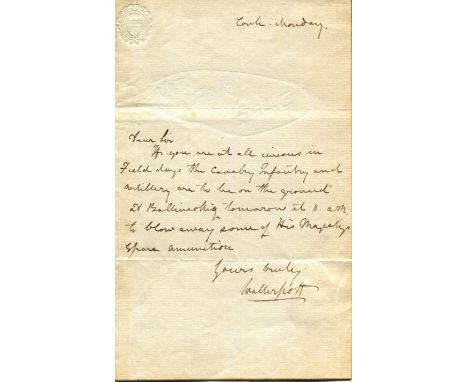 Cork. Monday.
Dear Sir
If you are at all curious in
Field days the Cavalry Infantry and
artillery are to be on the ground
at Ballincollig tomorrow at 11. a.m.
to blow away some of His Majestys
spare amunition
Yours truly.
Walter Scott